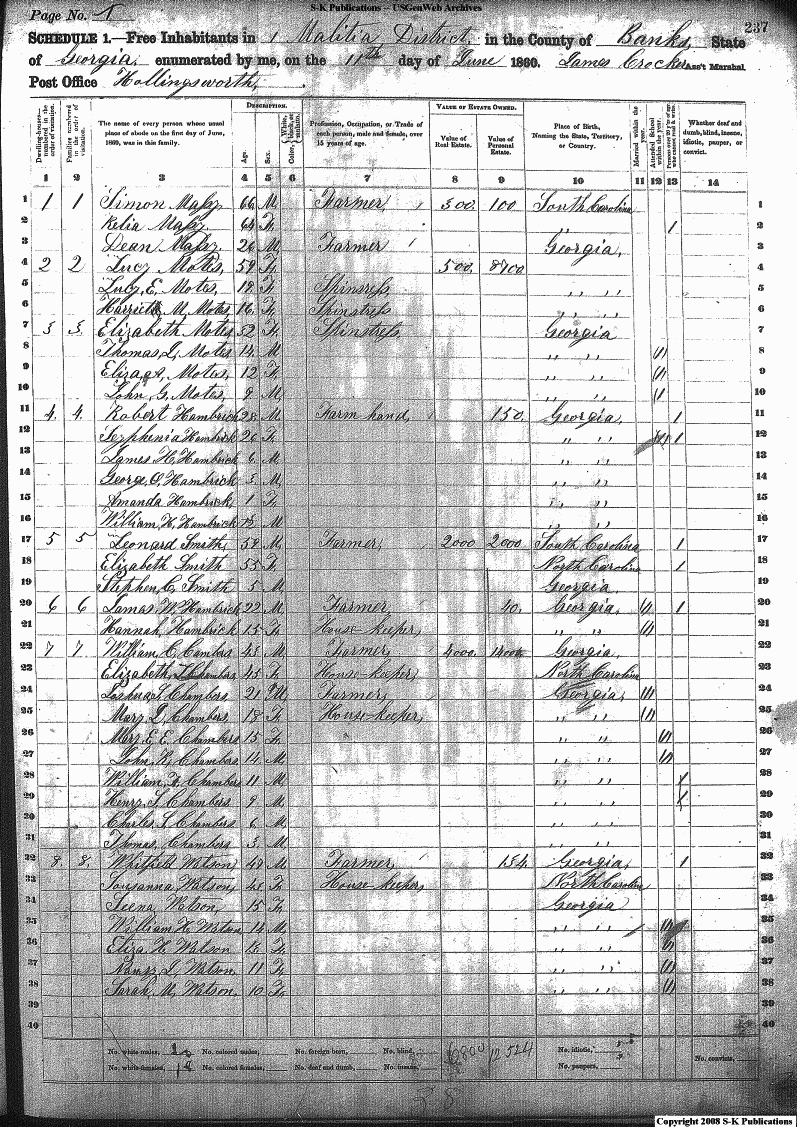 S-K Publications -- USGenWeb Archives
Page No. 1
237
SCHEDULE 1.—Free Inhabitants in 1 Malitia District in the County of Banks State
of Georgia enumerated by me, on the 11th day of June 1860. James Crocker Ass't Marshal.
Post Office Hollingsworth
DESCRIPTION. VALUE OF ESTATE OWNED.
Dwelling-houses—numbered in the order of visitation. Families numbered in the order of visitation. The name of every person whose usual place of abode on the first day of June, 1860, was in this family. Age. Sex. Color, White, black, or mulatto. Profession, Occupation, or Trade of each person, male and female, over 15 years of age. Value of Real Estate. Value of Personal Estate. Place of Birth, Naming the State, Territory, or Country. Married within the year. Attended School within the year. Persons over 20 y'rs of age who cannot read & write. Whether deaf and dumb, blind, insane, idiotic, pauper, or convict.
1 2 3 4 5 6 7 8 9 10 11 12 13 14
1 1 1 Simon 66 M Farmer 500 100 South Carolina 1
2 64 F " 1 2
3 Dean 26 M Farmer Georgia 3
4 2 2 Lucy Motes 59 F 500 8700 4
5 Lucy E. Motes 18 F Spinstress " " 5
6 Harriett M. Motes 16 F Spinstress " " 6
7 3 3 Elizabeth Motes 52 F Spinstress Georgia 7
8 Thomas L. Motes 14 M " " 1 8
9 Eliza A. Motes 12 F " " 1 9
10 John G. Motes 9 M " " 1 10
11 4 4 Robert Hambrick 28 M Farm hand 150 Georgia 1 11
12 Hambrick 26 F " " 1 12
13 James H. Hambrick 6 M " " 13
14 Georg O. Hambrick 3 M " " 14
15 Amanda Hambrick 1 F " " 15
16 William H. Hambrick M " " 16
17 5 5 Leonard Smith 58 M Farmer 2000 2000 South Carolina 1 17
18 Elizabeth Smith 55 F North Carolina 1 18
19 Stephen C. Smith 5 M Georgia 19
20 6 6 James W. Hambrick 22 M Farmer 40 Georgia 1 1 20
21 Hannah Hambrick 15 F House keeper " " 1 21
22 7 7 William C. Cambers 48 M Farmer 4000 Georgia 22
23 Elizabeth Chambers 45 F House keeper North Carolina 23
24 Joshua S. Chambers 21 M Farmer Georgia 1 24
25 Mary L. Chambers 18 F House keeper " " 1 25
26 Mary E. E. Chambers 15 F " " 1 26
27 John R. Chambers 14 M " " 1 27
28 Chambers 11 M " " 28
29 Henry S. Chambers 9 M " " 29
30 Charles S. Chambers 6 M " " 30
31 Thomas Chambers 3 M " " 31
32 8 8 Whitfield Watson 49 M Farmer 154 Georgia 1 32
33 Watson 48 F House keeper North Carolina 33
34 Watson 15 F Georgia 34
35 William H. Watson 14 M " " 1 35
36 Eliza H. Watson F " " 1 36
37 Watson 11 F " " 1 37
38 Sarah M. Watson 10 F " " 1 38
39 39
40 40
No. white males, No. colored males, No. foreign born, No. blind, 12524 No. idiotic,
No. white females, No. colored females, No. deaf and dumb, No. insane, No. paupers, No. convicts,
Copyright 2008 S-K Publications